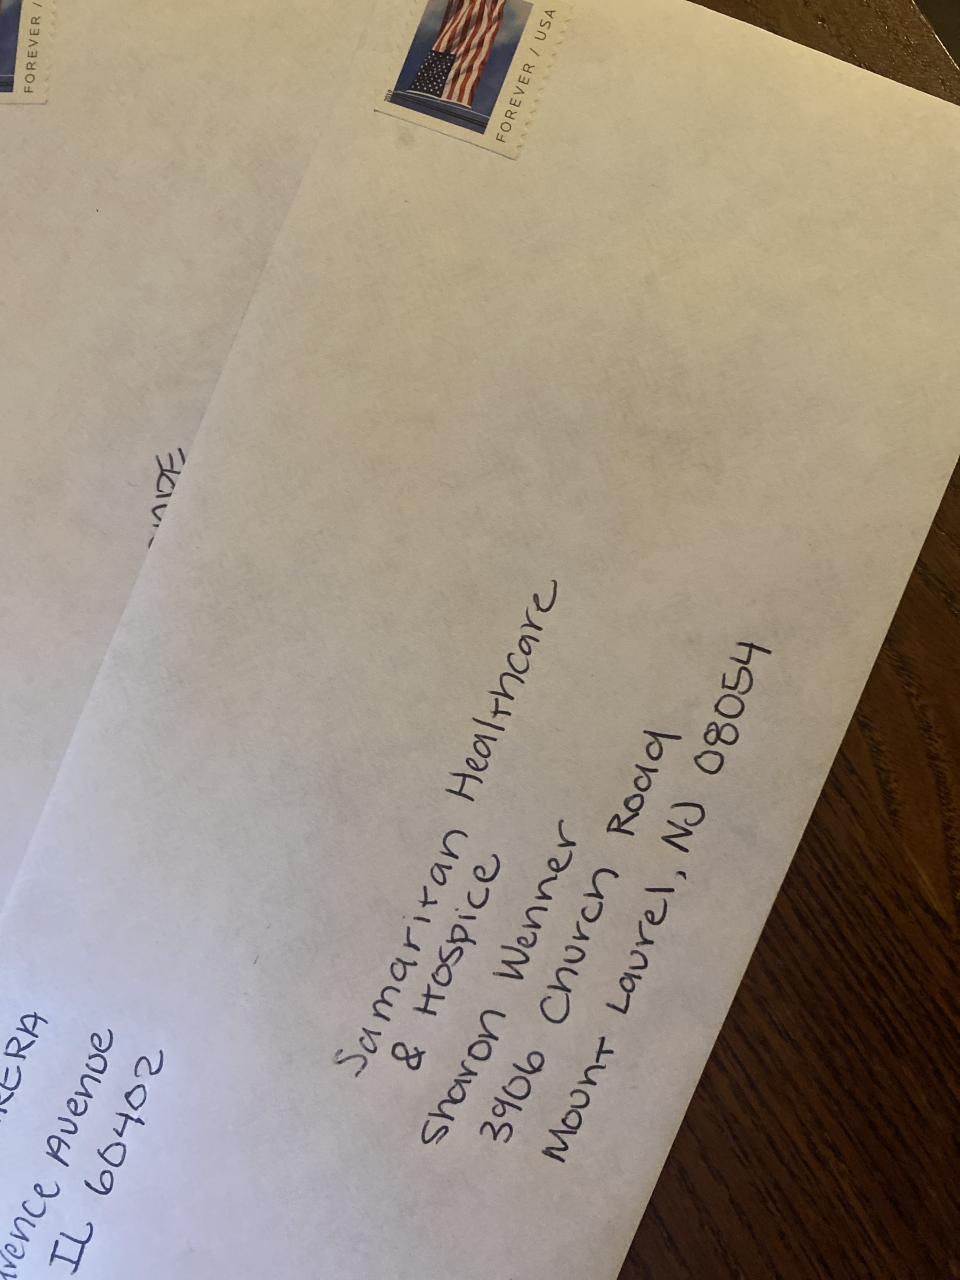 FOREVER / USA
Samaritan Healthcare
& Hospice
Sharon Wenner
3906 Church Road
Mount Laurel, NJ 08054
FOREVER /
Avenue
IL 60402